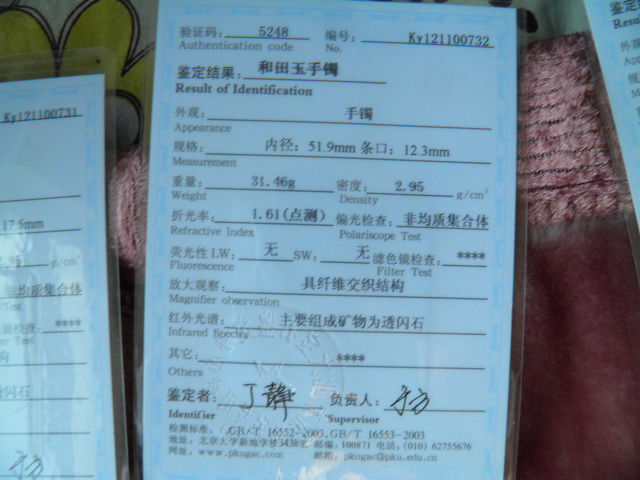 验证码: 5248 编号: Ky121100732
Authentication code No.
鉴定结果: 和田玉手镯
Result of Identification
外观: 手镯
Appearance
规格: 内径: 51.9mm 条口: 12.3mm
Measurement
重量: 31.46g 密度: 2.95 g/cm³
Weight Density
折光率: 1.61(点测) 偏光检查: 非均质集合体
Refractive Index Polariscope Test
荧光性 LW: 无 SW: 无 滤色镜检查: ****
Fluorescence Filter Test
放大观察: 具纤维交织结构
Magnifier observation
红外光谱: 主要组成矿物为透闪石
Infrared Spectra
其它: ****
Others
鉴定者: 丁静 负责人:
Identifier Supervisor
检测标准: GB/T 16552-2003.GB/T 16553-2003
地址: 北京大学新地学楼3438室 邮编: 100871 电话: (010) 62755676
网址: www.pkugac.com 邮箱: pkugac@pku.edu.cn
Ky121100731
17.5mm
g/cm
非均质集合体
镜检查: ****
er Test
构
闪石
鉴定
Resul
外观
App